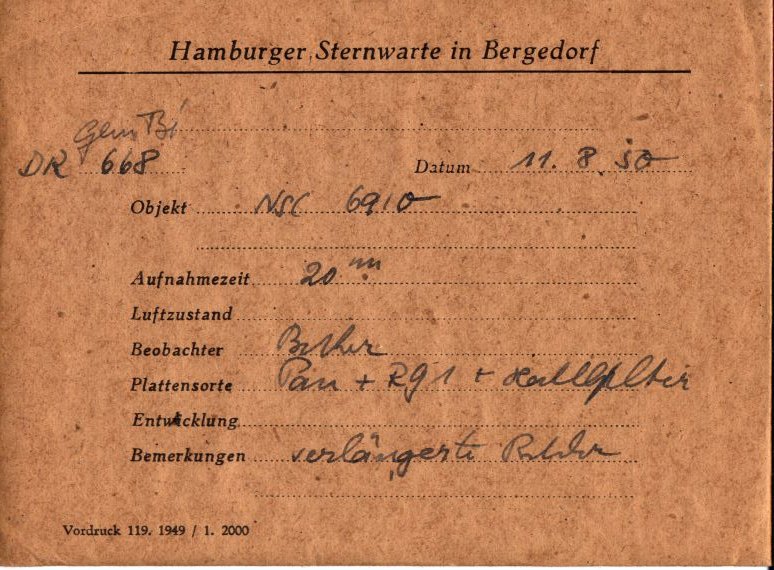 Hamburger Sternwarte in Bergedorf
DR 668 Datum 11. 8. 50
Objekt NGC 6910
Aufnahmezeit 20 m
Luftzustand
Beobachter
Plattensorte Pan + RG1 +
Entwicklung
Bemerkungen verlängerte
Vordruck 119. 1949 / 1. 2000